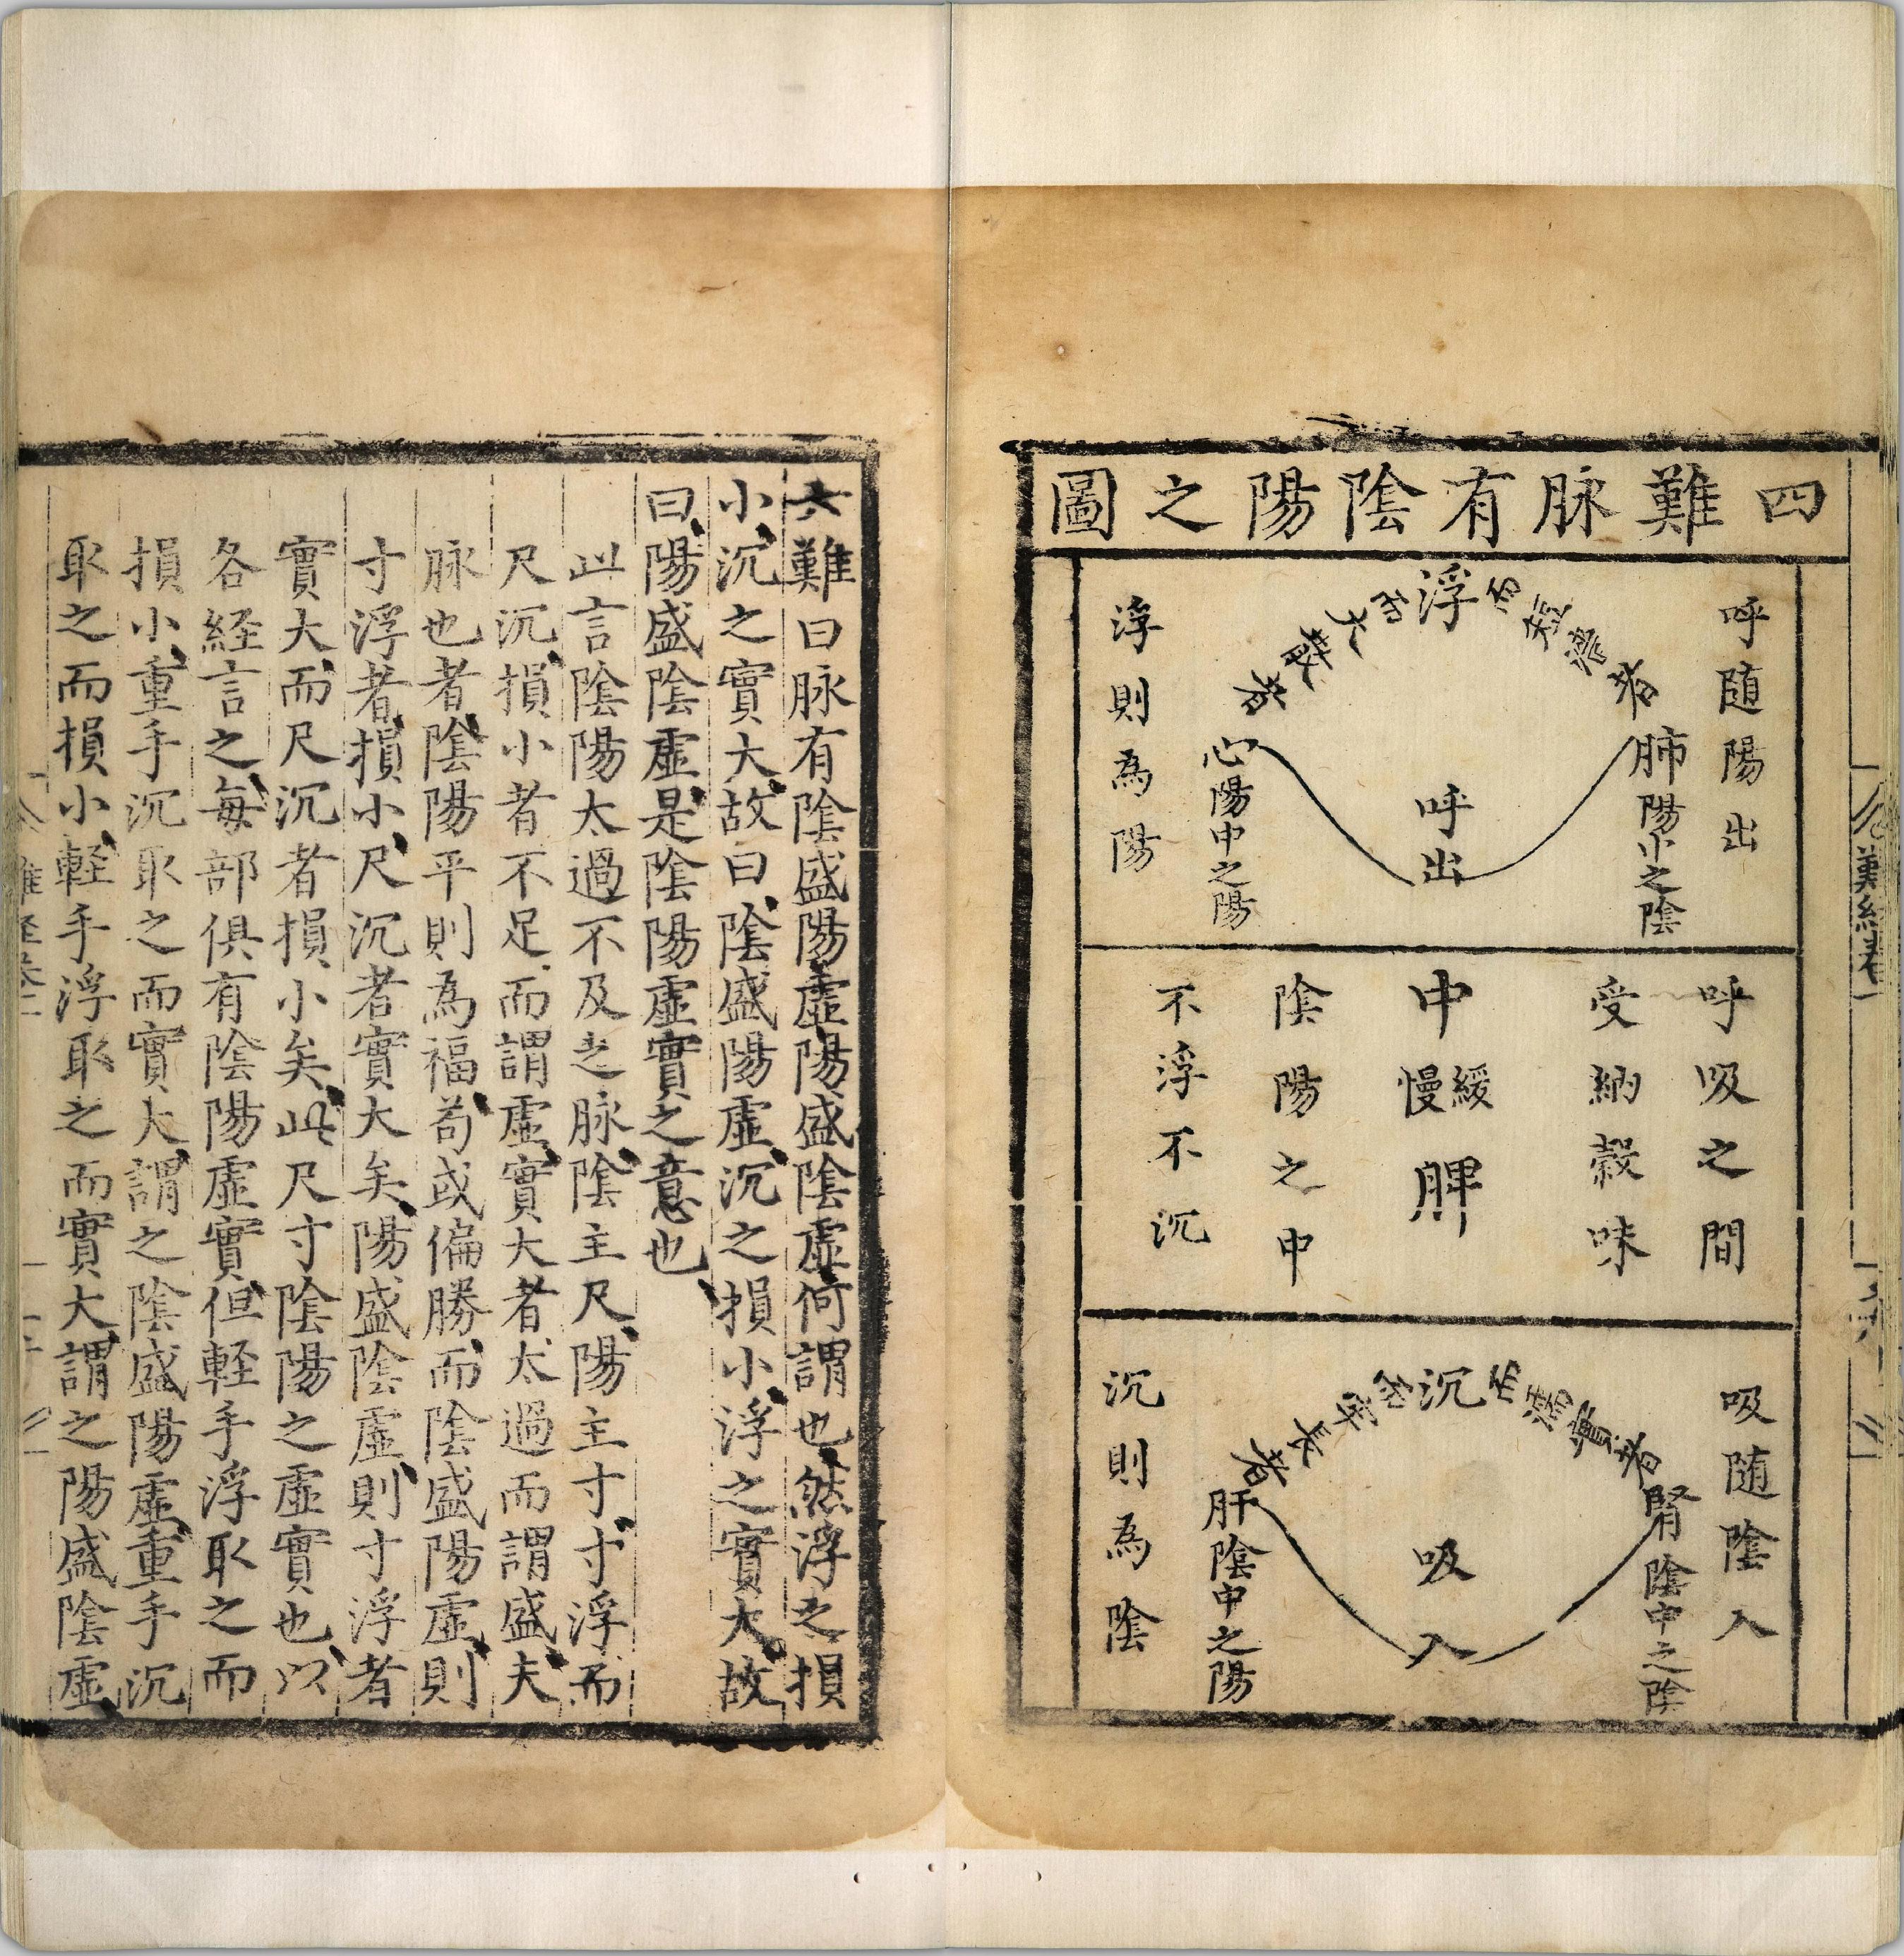 四難脉有陰陽之圖
呼随陽出
浮而短濇者
肺陽中之陰
浮而大散者
心陽中之陽
呼出
浮則為陽
呼吸之間
受納穀味
中
緩慢
脾
陰陽之中
不浮不沉
吸随陰入
沉而濡實者
腎陰中之陰
沉
牢長者
肝陰中之陽
吸入
沉則為陰
六難曰脉有陰盛陽虚陽盛陰虚何謂也然浮之損
小沉之實大故曰陰盛陽虚沉之損小浮之實大故
曰陽盛陰虚是陰陽虚實之意也
此言陰陽太過不及之脉陰主尺陽主寸寸浮而
尺沉損小者不足而謂虚實大者太過而謂盛夫
脉也者陰陽平則為福苟或偏勝而陰盛陽虚則
寸浮者損小尺沉者實大矣陽盛陰虚則寸浮者
實大而尺沉者損小矣此尺寸陰陽之虚實也以
各経言之毎部俱有陰陽虚實但軽手浮取之而
損小重手沉取之而實大謂之陰盛陽虚重手沉
取之而損小軽手浮取之而實大謂之陽盛陰虚